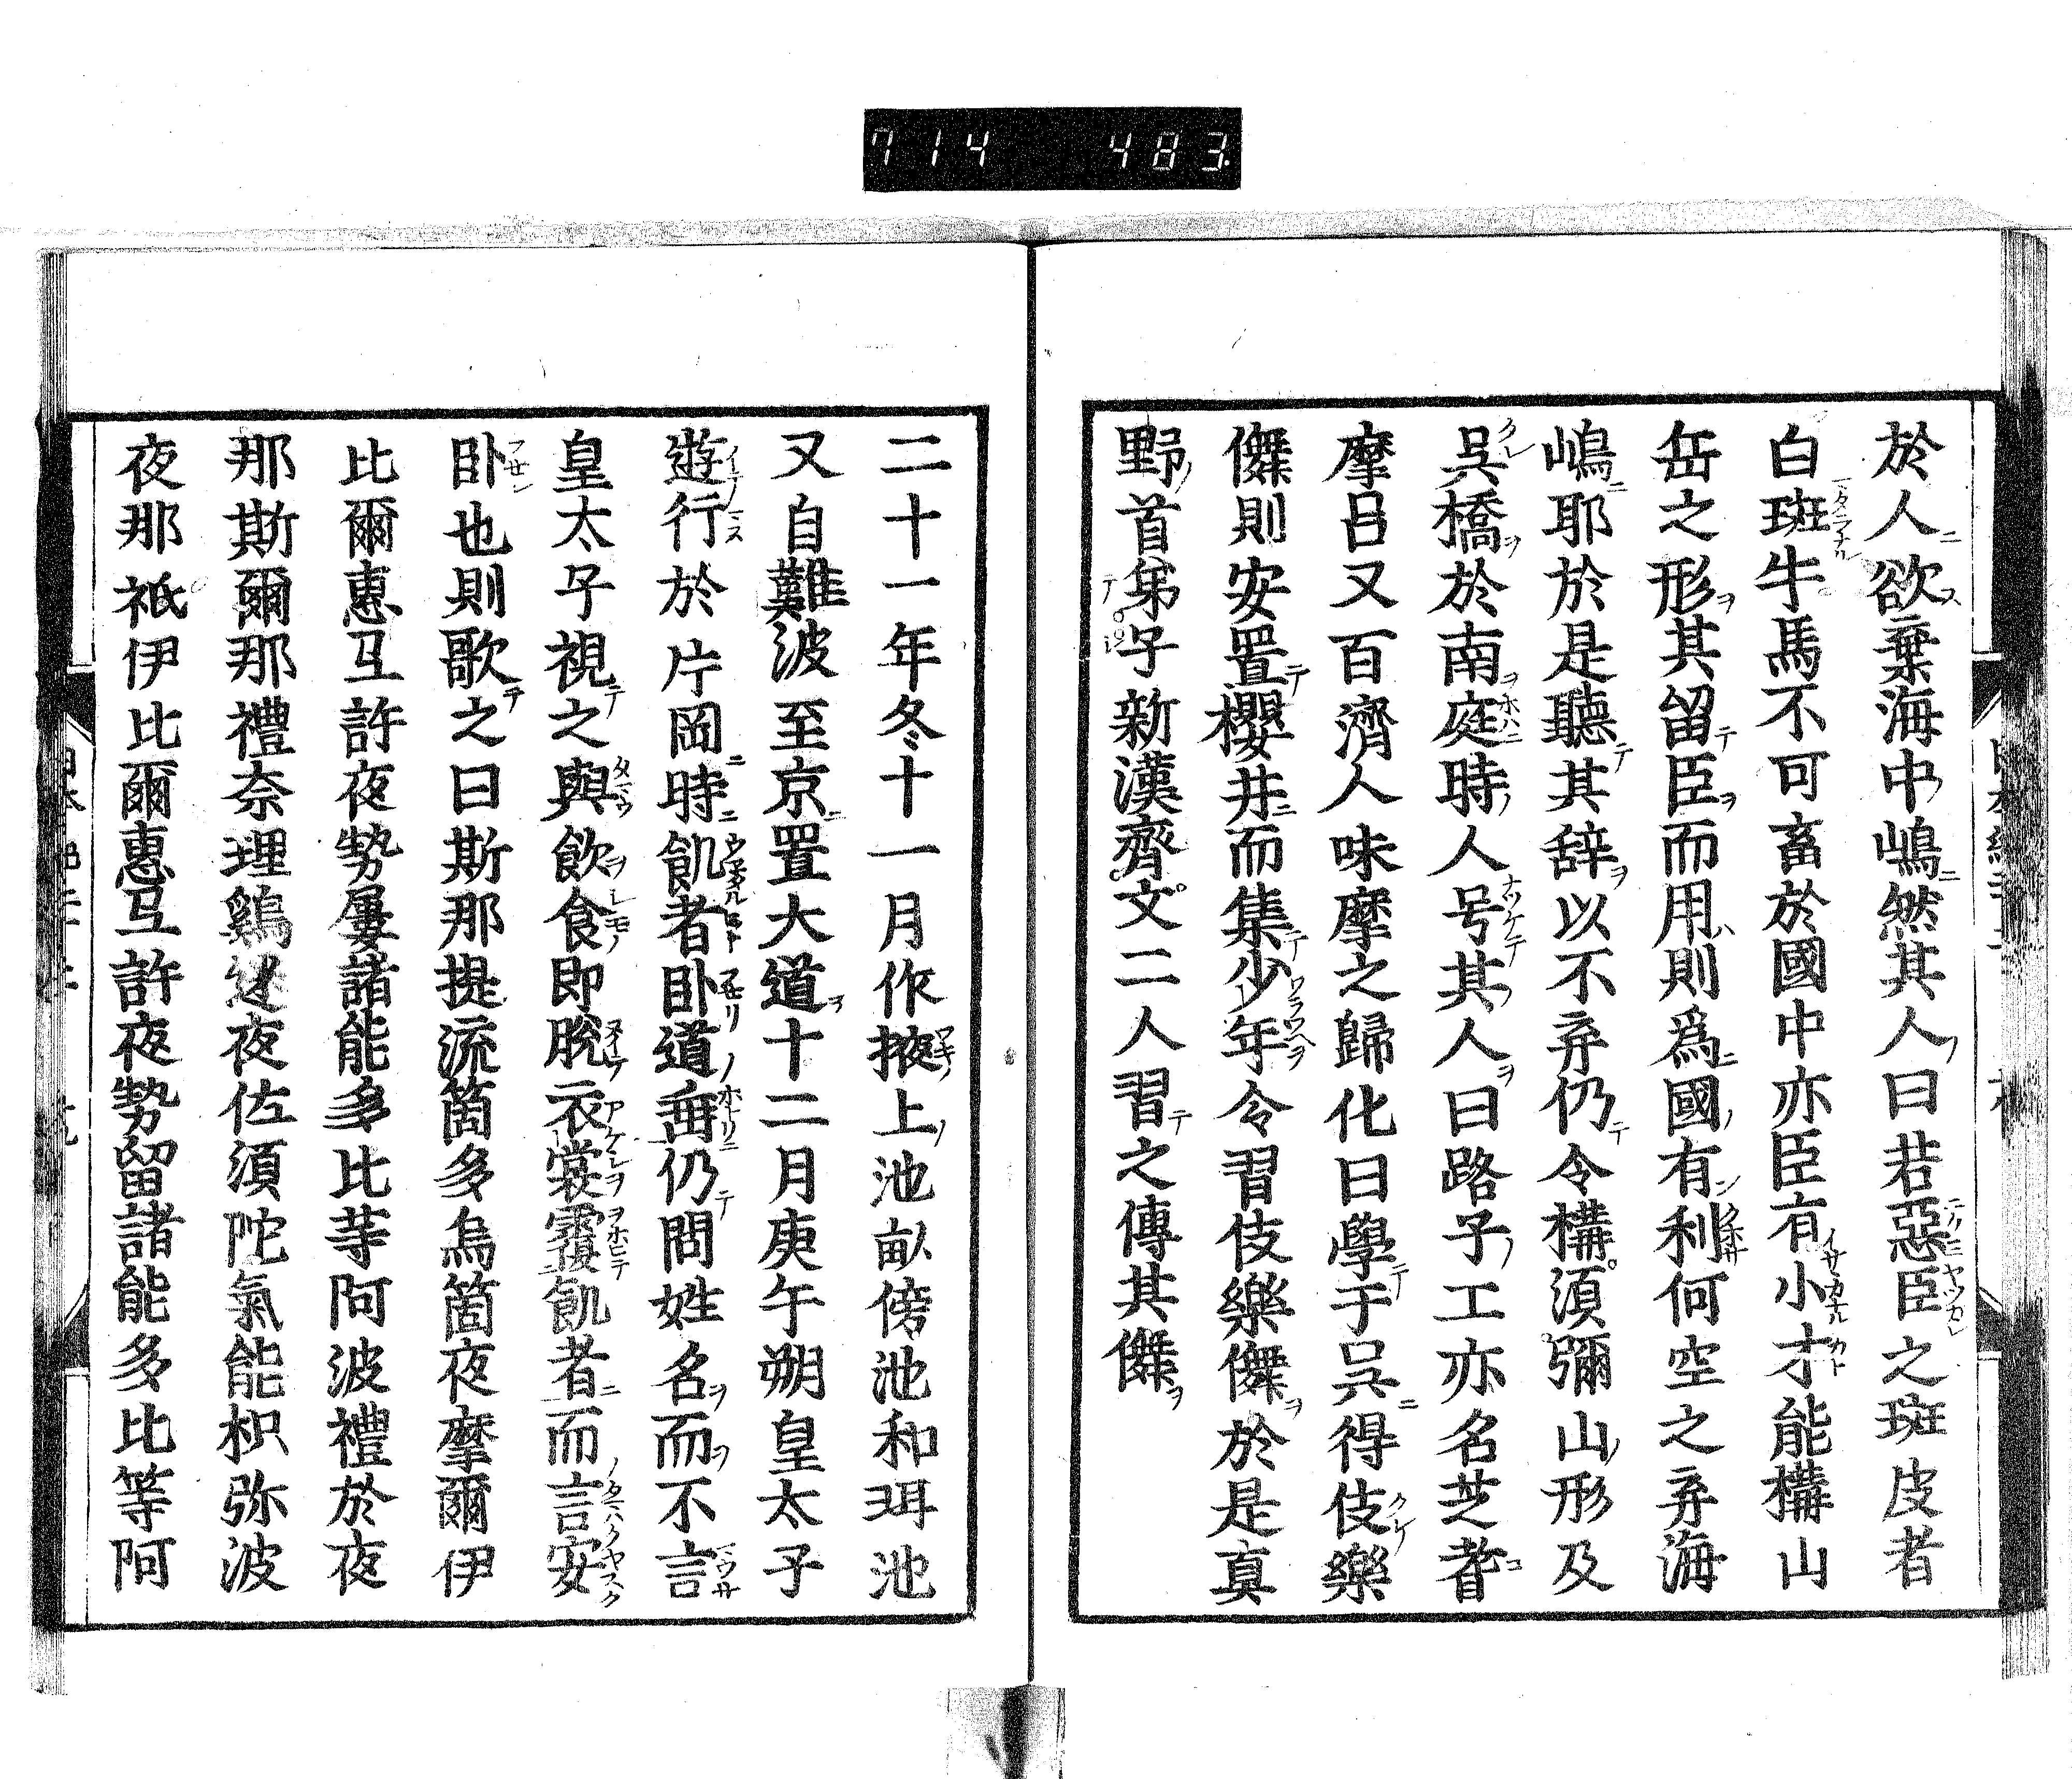 714 483
於人欲棄海中嶋然其人曰若惡臣之斑皮者
白斑牛馬不可畜於國中亦臣有小才能構山
岳之形其留臣而用則爲國有利何空之弃海
嶋耶於是聽其辞以不弃仍令構須彌山形及
吳橋於南庭時人号其人曰路子工亦名芝耆
摩呂又百濟人味摩之歸化曰學于吳得伎樂
儛則安置櫻井而集少年令習伎樂儛於是真
野首弟子新漢齊文二人習之傳其儛
二十一年冬十一月作掖上池畝傍池和珥池
又自難波至京置大道十二月庚午朔皇太子
遊行於片岡時飢者卧道垂仍問姓名而不言
皇太子視之與飲食即脫衣裳覆飢者而言安
卧也則歌之曰斯那提流箇多烏箇夜摩爾伊
比爾惠互許夜勢屢諸能多比等阿波禮於夜
那斯爾那禮奈理鷄迷夜佐須陀氣能枳弥波
夜那祇伊比爾惠互許夜勢留諸能多比等阿